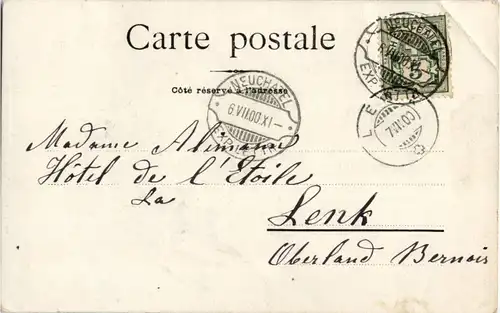 Carte postale
Côté réservé à l'adresse
NEUCHATEL
6.VII.00.XI-
EXP. LETTR.
NEUCHATEL
6.VII.00.XI-
5
7.VII.00
Madame Alemann
Hôtel de l'Etoile
La
Lenk
Oberland Bernois